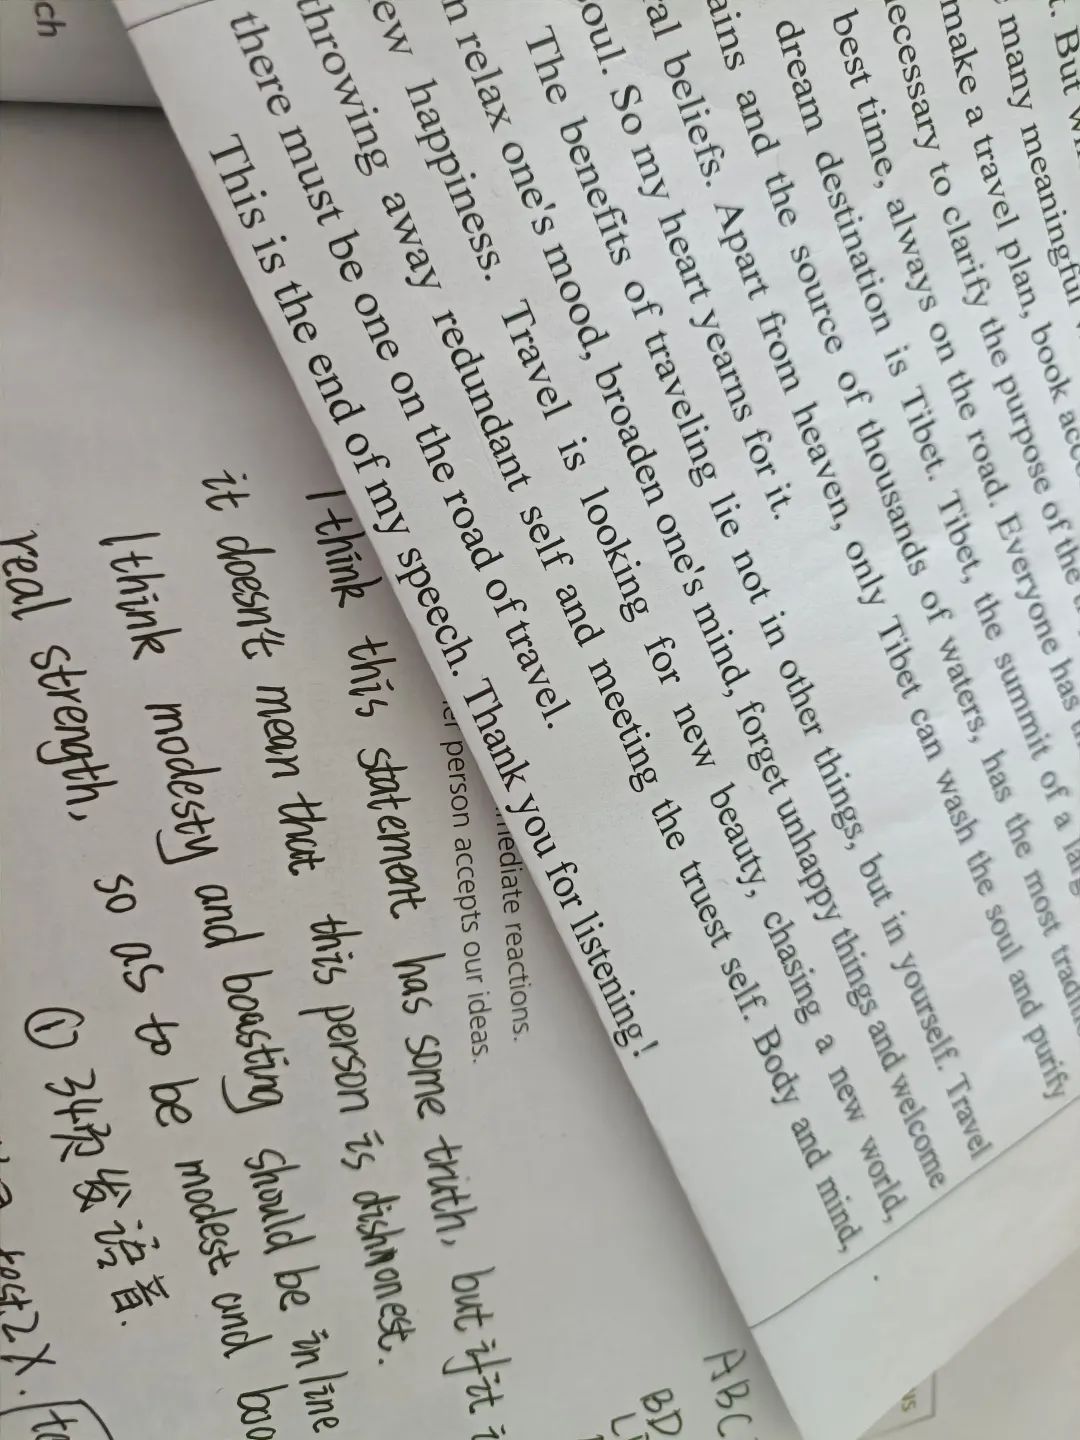 t. But
many meaningful
make a travel plan, book
ecessary to clarify the purpose of the
best time, always on the road. Everyone has
dream destination is Tibet. Tibet, the summit of a
ains and the source of thousands of waters, has the most
ral beliefs. Apart from heaven, only Tibet can wash the soul and purify
oul. So my heart yearns for it.
The benefits of traveling lie not in other things, but in yourself. Travel
n relax one's mood, broaden one's mind, forget unhappy things and welcome
ew happiness. Travel is looking for new beauty, chasing a new world,
throwing away redundant self and meeting the truest self. Body and mind,
there must be one on the road of travel.
This is the end of my speech. Thank you for listening!
mediate reactions.
person accepts our ideas.
I think this statement has some truth, but if it i
it doesn't mean that this person is dishonest.
I think modesty and boasting should be in line
real strength, so as to be modest and boa
① 34次发语音.
2X.
ABC
BD
ch
ws